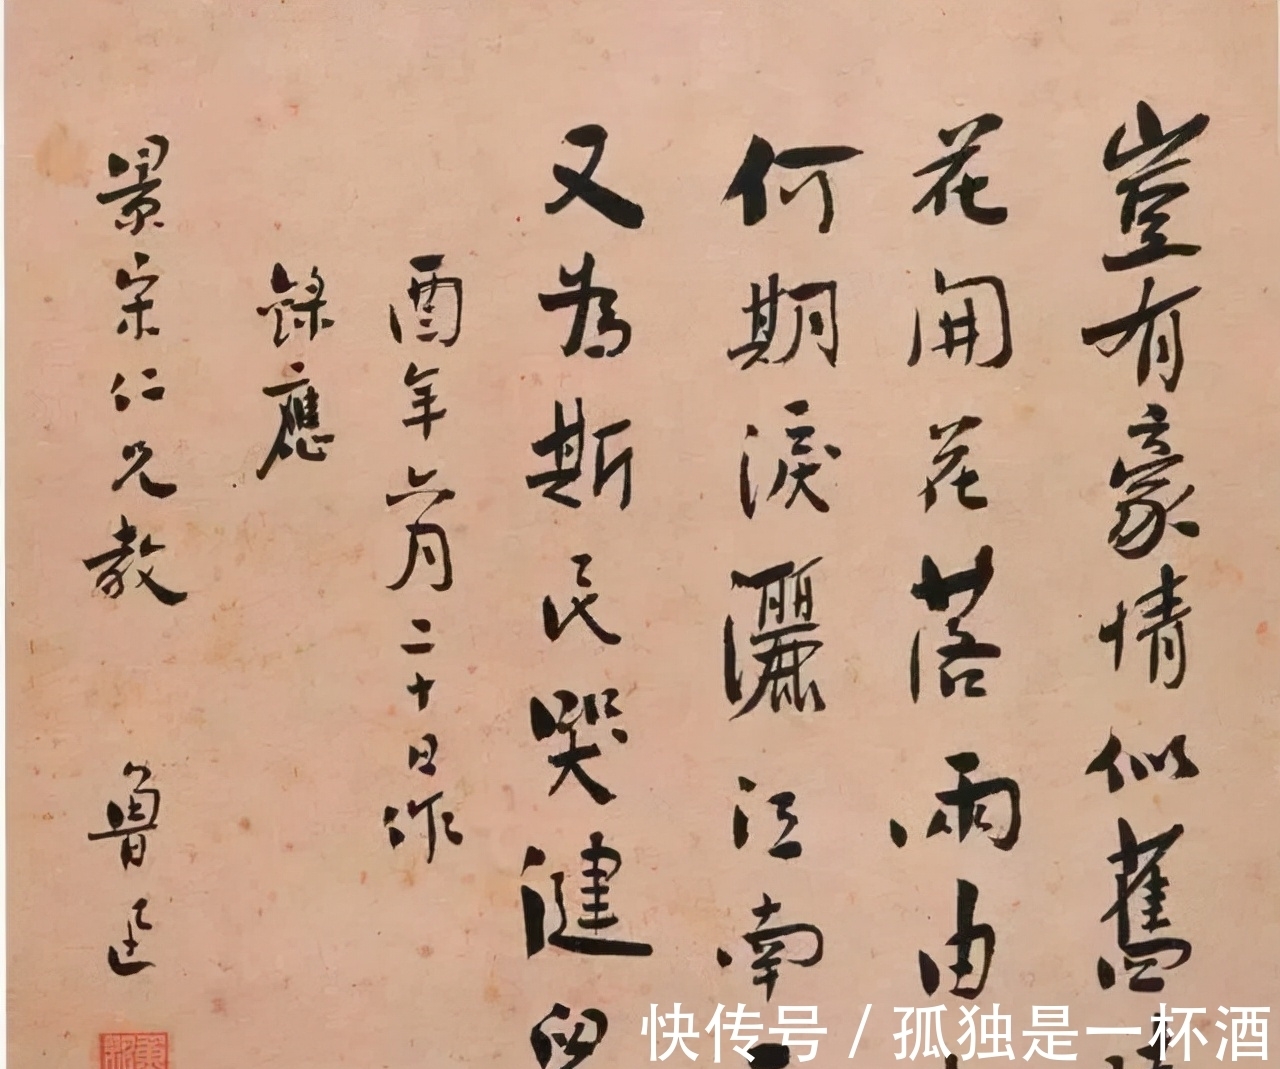 豈有豪情似舊
花開花落兩由
何期淚灑江南
又為斯民哭健
酉年六月二十日作
錄應
景宋仁兄教
魯迅
快传号/孤独是一杯酒